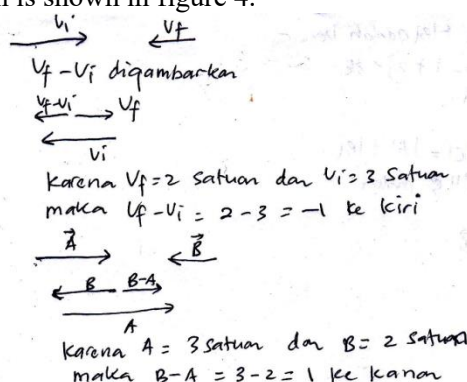 n is shown in figure 4.
Vi Vf
Vf - Vi digambarkan
Vf-Vi Vf
Vi
Karena Vf = 2 Satuan dan Vi = 3 Satuan
maka Vf - Vi = 2 - 3 = -1 ke kiri
A B
B B-A
A
Karena A = 3 Satuan dan B = 2 Satuan
maka B - A = 3 - 2 = 1 ke kanan